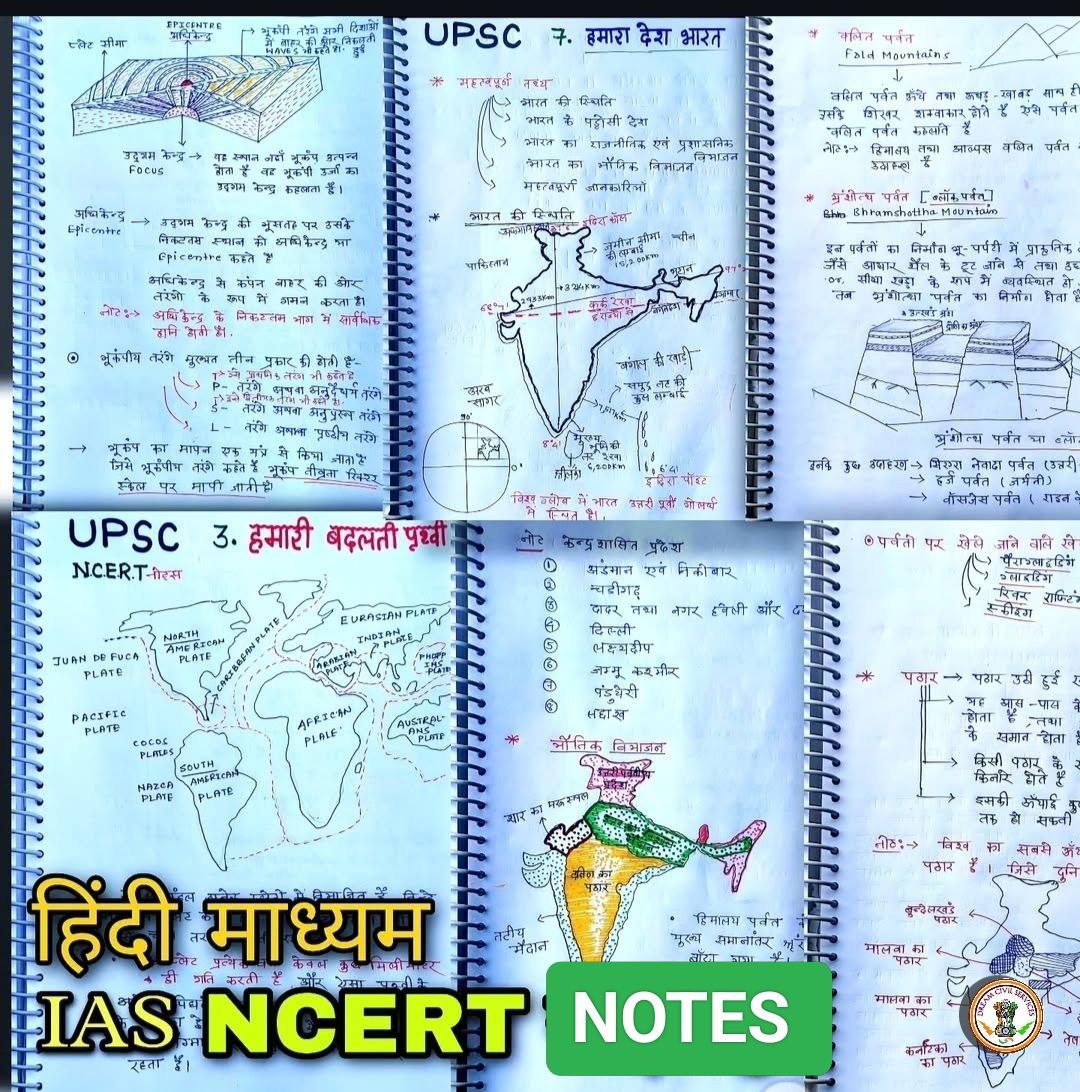 प्लेट सीमा
EPICENTRE
अधिकेन्द्र
भूकंपी तरंगे सभी दिशाओं
में बाहर की ओर निकलती
WAVES भी कहते है। हुई
उद्गम केन्द्र → वह स्थान जहाँ भूकंप उत्पन्न
FOCUS
होता है वह भूकंपी उर्जा का
उद्गम केन्द्र कहलाता है।
अधिकेन्द्र → उदगम केन्द्र की भूसतह पर उसके
Epicentre
निकटतम स्थान को अधिकेन्द्र या
Epicentre कहते है
अधिकेन्द्र से कंपन बाहर की ओर
तरंगो के रूप में गमन करता है।
नोट:→ अधिकेन्द्र के निकटतम भाग में सार्वधिक
हानि होती है।
भूकंपीय तरंगे मुख्यत तीन प्रकार की होती है-
इसे प्राथमिक तरंग भी कहते है
P - तरंगे अथवा अनुदैर्ध्य तरंगे
S - तरंगे अथवा अनुप्रस्थ तरंगे
L - तरंगे अथवा पृष्ठीय तरंगे
→ भूकंप का मापन एक यंत्र से किया जाता है
जिसे भूकंपीय तरंगे कहते है भूकंप तीव्रता रिक्टर
स्केल पर मापी जाती है।
UPSC 7. हमारा देश भारत
* महत्वपूर्ण तथ्य
भारत की स्थिति
भारत के पड़ोसी देश
भारत का राजनीतिक एवं प्रशासनिक
विभाजन
भारत का भौतिक विभाजन
महत्वपूर्ण जानकारियाँ
* भारत की स्थिति
इंदिरा कॉल
पाकिस्तान
जमीन सीमा
की लम्बाई
15,200km
चीन
भूटान
97°
68°
2933Km
3214Km
कर्क रेखा
बंगाल की खाड़ी
अरब
सागर
समुद्र तट की
कुल लम्बाई
90°
0°
8°4'
मुख्य
भूमि की
तट रेखा
6,200km
6°4'
इंदिरा पॉइंट
विश्व ग्लोब में भारत उत्तरी पूर्वी गोलार्ध
में स्थित है।
* वलित पर्वत
Fold Mountains
वलित पर्वत ऊँचे तथा ऊबड़-खाबड़ साथ ही
उसके शिखर शंक्वाकार होते है ऐसे पर्वत
वलित पर्वत कहलाते है
नोट:→ हिमालय तथा आल्पस वलित पर्वत
उदाहरण है
* भ्रंशोत्थ पर्वत [ब्लॉक पर्वत]
Bhramshottha Mountain
इन पर्वतो का निर्माण भू-पर्पटी में प्राकृतिक
जैसे आधार शैल के टूट जाने से तथा
or. सीधा खड़ा के रूप में व्यवस्थित हो
तब भ्रंशोत्था पर्वत का निर्माण होता है
उत्खंड भ्रंश
भ्रंशोत्थ पर्वत या
उनके कुछ उदाहरण → सियरा नेवादा पर्वत (उत्तरी
→ हार्ज पर्वत (जर्मनी)
→ वॉसजेस पर्वत (राइन
UPSC 3. हमारी बदलती पृथ्वी
NCERT-नोटस
JUAN DE FUCA
PLATE
NORTH
AMERICAN
PLATE
CARIBBEAN PLATE
EURASIAN PLATE
INDIAN
PLATE
ARABIAN
PLATE
PACIFIC
PLATE
AFRICAN
PLALE
AUSTRAL-
ANS
PLATE
COCOS
PLATES
NAZCA
PLATE
SOUTH
AMERICAN
PLATE
प्लेट प्रत्येक वर्ष केवल कुछ मिलीमीटर
ही गति करती है
रहता है।
नोट केन्द्र शासित प्रदेश
① अंडमान एवं निकोबार
② चंडीगढ़
③ दादर तथा नगर हवेली और
④ दिल्ली
⑤ लक्ष्यदीप
⑥ जम्मू कश्मीर
⑦ पंडुचेरी
⑧ लद्दाख
* भौतिक विभाजन
उत्तरी पर्वतीय
प्रदेश
थार का मरूस्थल
दक्षिण का
पठार
तटीय
मैदान
• हिमालय पर्वत
मुख्य समानांतर
बाँटा गया है।
पर्वतो पर खेले जाने वाले
पैराग्लाइडिंग
ग्लाइडिंग
रिवर राफ्टिंग
स्कीइंग
* पठार → पठार उठी हुई
यह आस-पास के
होता है तथा
के समान होता है
किसी पठार के
किनारे होते है
इसकी ऊँचाई कुछ
तक हो सकती
नोट:→ विश्व का सबसे ऊँचा
पठार है। जिसे
बुन्देलखंड
पठार
मालवा का
पठार
मालवा का
पठार
कर्नाटका
का पठार
हिंदी माध्यम
IAS NCERT NOTES
DREAM CIVIL SERVICES